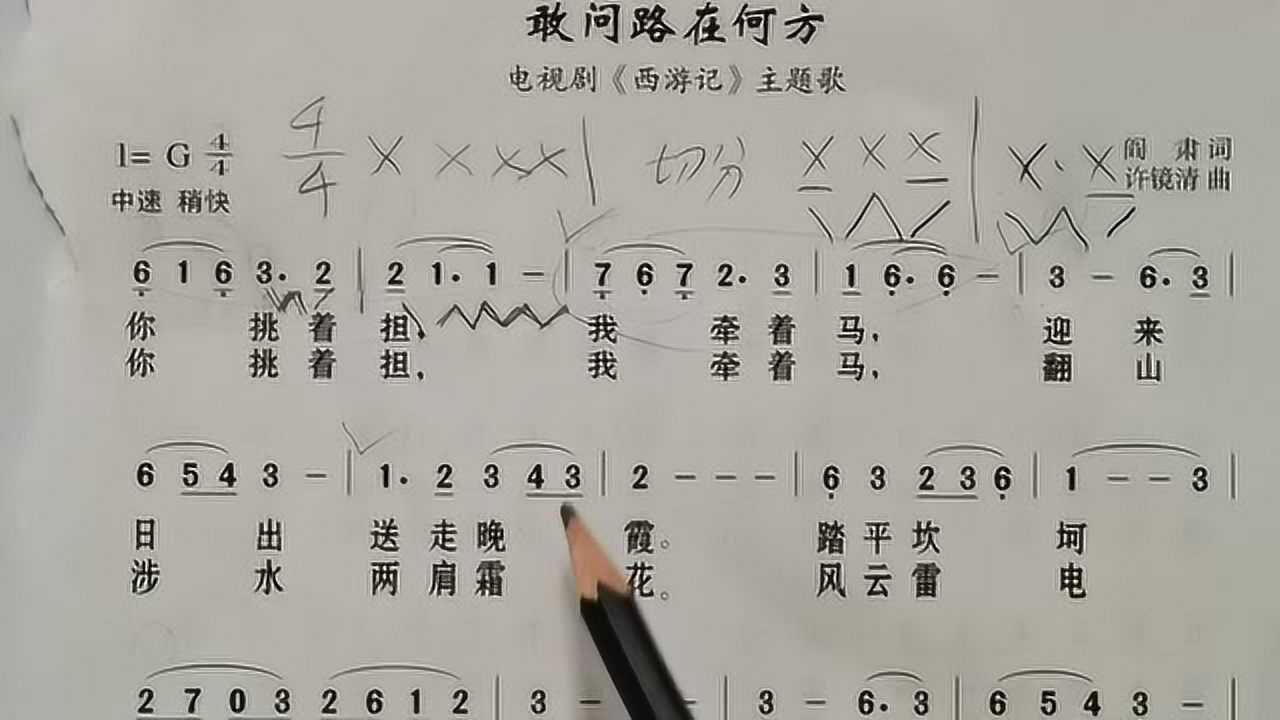 敢问路在何方
电视剧《西游记》主题歌
1= G 4/4 4/4 X X X X | 切分 X X X | X · X 阎 肃 词
中速 稍快 许镜清 曲
6 1 6 3. 2 | 2 1. 1 - | 7 6 7 2. 3 | 1 6. 6 - | 3 - 6. 3 |
你 挑 着 担, 我 牵 着 马, 迎 来
你 挑 着 担, 我 牵 着 马, 翻 山
6 5 4 3 - | 1. 2 3 4 3 | 2 - - - | 6 3 2 3 6 | 1 - - 3 |
日 出 送 走 晚 霞。 踏 平 坎 坷
涉 水 两 肩 霜 花。 风 云 雷 电
2 7 0 3 2 6 1 2 | 3 - - | 3 - 6. 3 | 6 5 4 3 - |